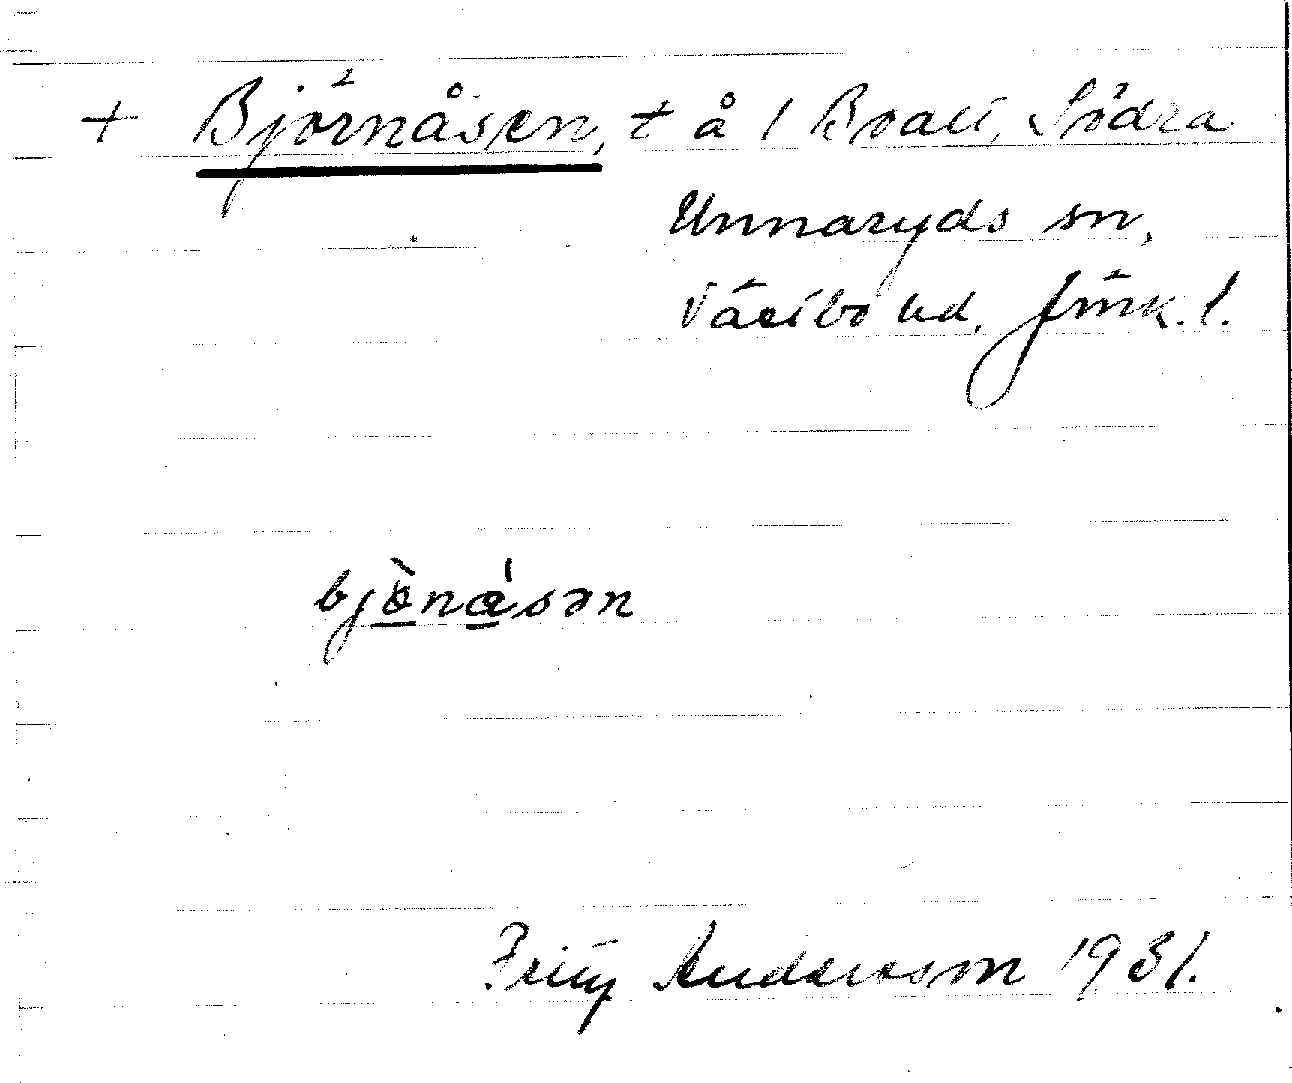 + Björnåsen, t å 1 Boalt, Södra
Unnaryds sn,
Västbo hd. Jönk. l.
bjònásən
Fritz Andersson 1931.